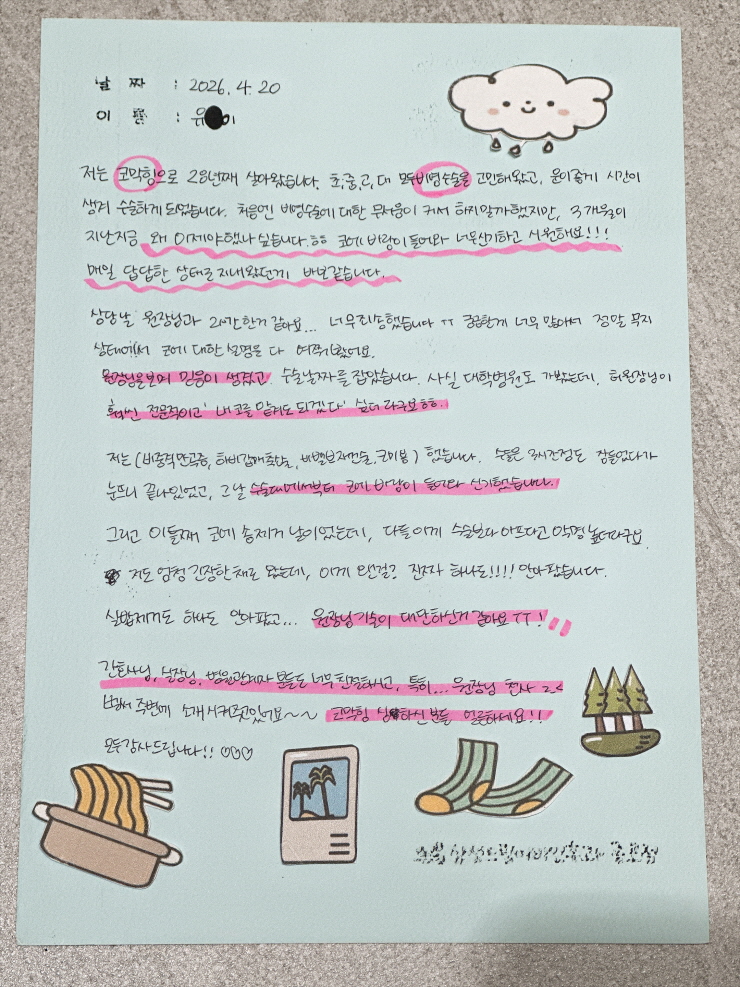 날 짜 : 2026. 4. 20
이 름 : 유 이
저는 코막힘으로 28년째 살아왔습니다. 초,중,고,대 모두 비염수술을 고민해왔고, 운이좋게 시간이
생겨 수술하게 되었습니다. 처음엔 비염수술에 대한 무서움이 커서 하지말까 했지만, 3개월이
지난지금 왜 이제야했나 싶습니다.ㅎㅎ 코에 바람이 들어와 너무신기하고 시원해요!!!
매일 답답한 상태로 지내왔던게 바보같습니다.
상담날 원장님과 2시간한거 같아요... 너무죄송했습니다 ㅜㅜ 궁금한게 너무 많아서 정말 무지
상태에서 코에 대한 설명을 다 여쭤봤어요.
원장님을보며 믿음이 생겼고 수술날짜를 잡았습니다. 사실 대학병원도 가봤는데, 허원장님이
훨씬 전문적이고 '내 코를 맡겨도 되겠다' 싶더라구요ㅎㅎ.
저는 (비중격만곡증, 하비갑개축소술, 비밸브재건술, 코미용) 했습니다. 수술은 3시간정도 잠들었다가
눈뜨니 끝나있었고, 그날 수술대에서부터 코에 바람이 들어와 신기했습니다.
그리고 이틀째 코에 솜제거 날이었는데, 다들 이게 수술보다 아프다고 악명 높더라구요
저도 엄청 긴장한채로 왔는데, 이게 왠걸? 진짜 하나도!!!! 안아팠습니다.
실밥제거도 하나도 안아팠고... 원장님 기술이 대단하신거 같아요 ㅜㅜ!
간호사님, 실장님, 병원관계자 분들도 너무 친절하시고, 특히... 원장님 천사
벌써 주변에 소개시켜주고있어요~~ 코막힘 심하신 분들 얼른하세요!!
모두감사드립니다!! ♡♡♡